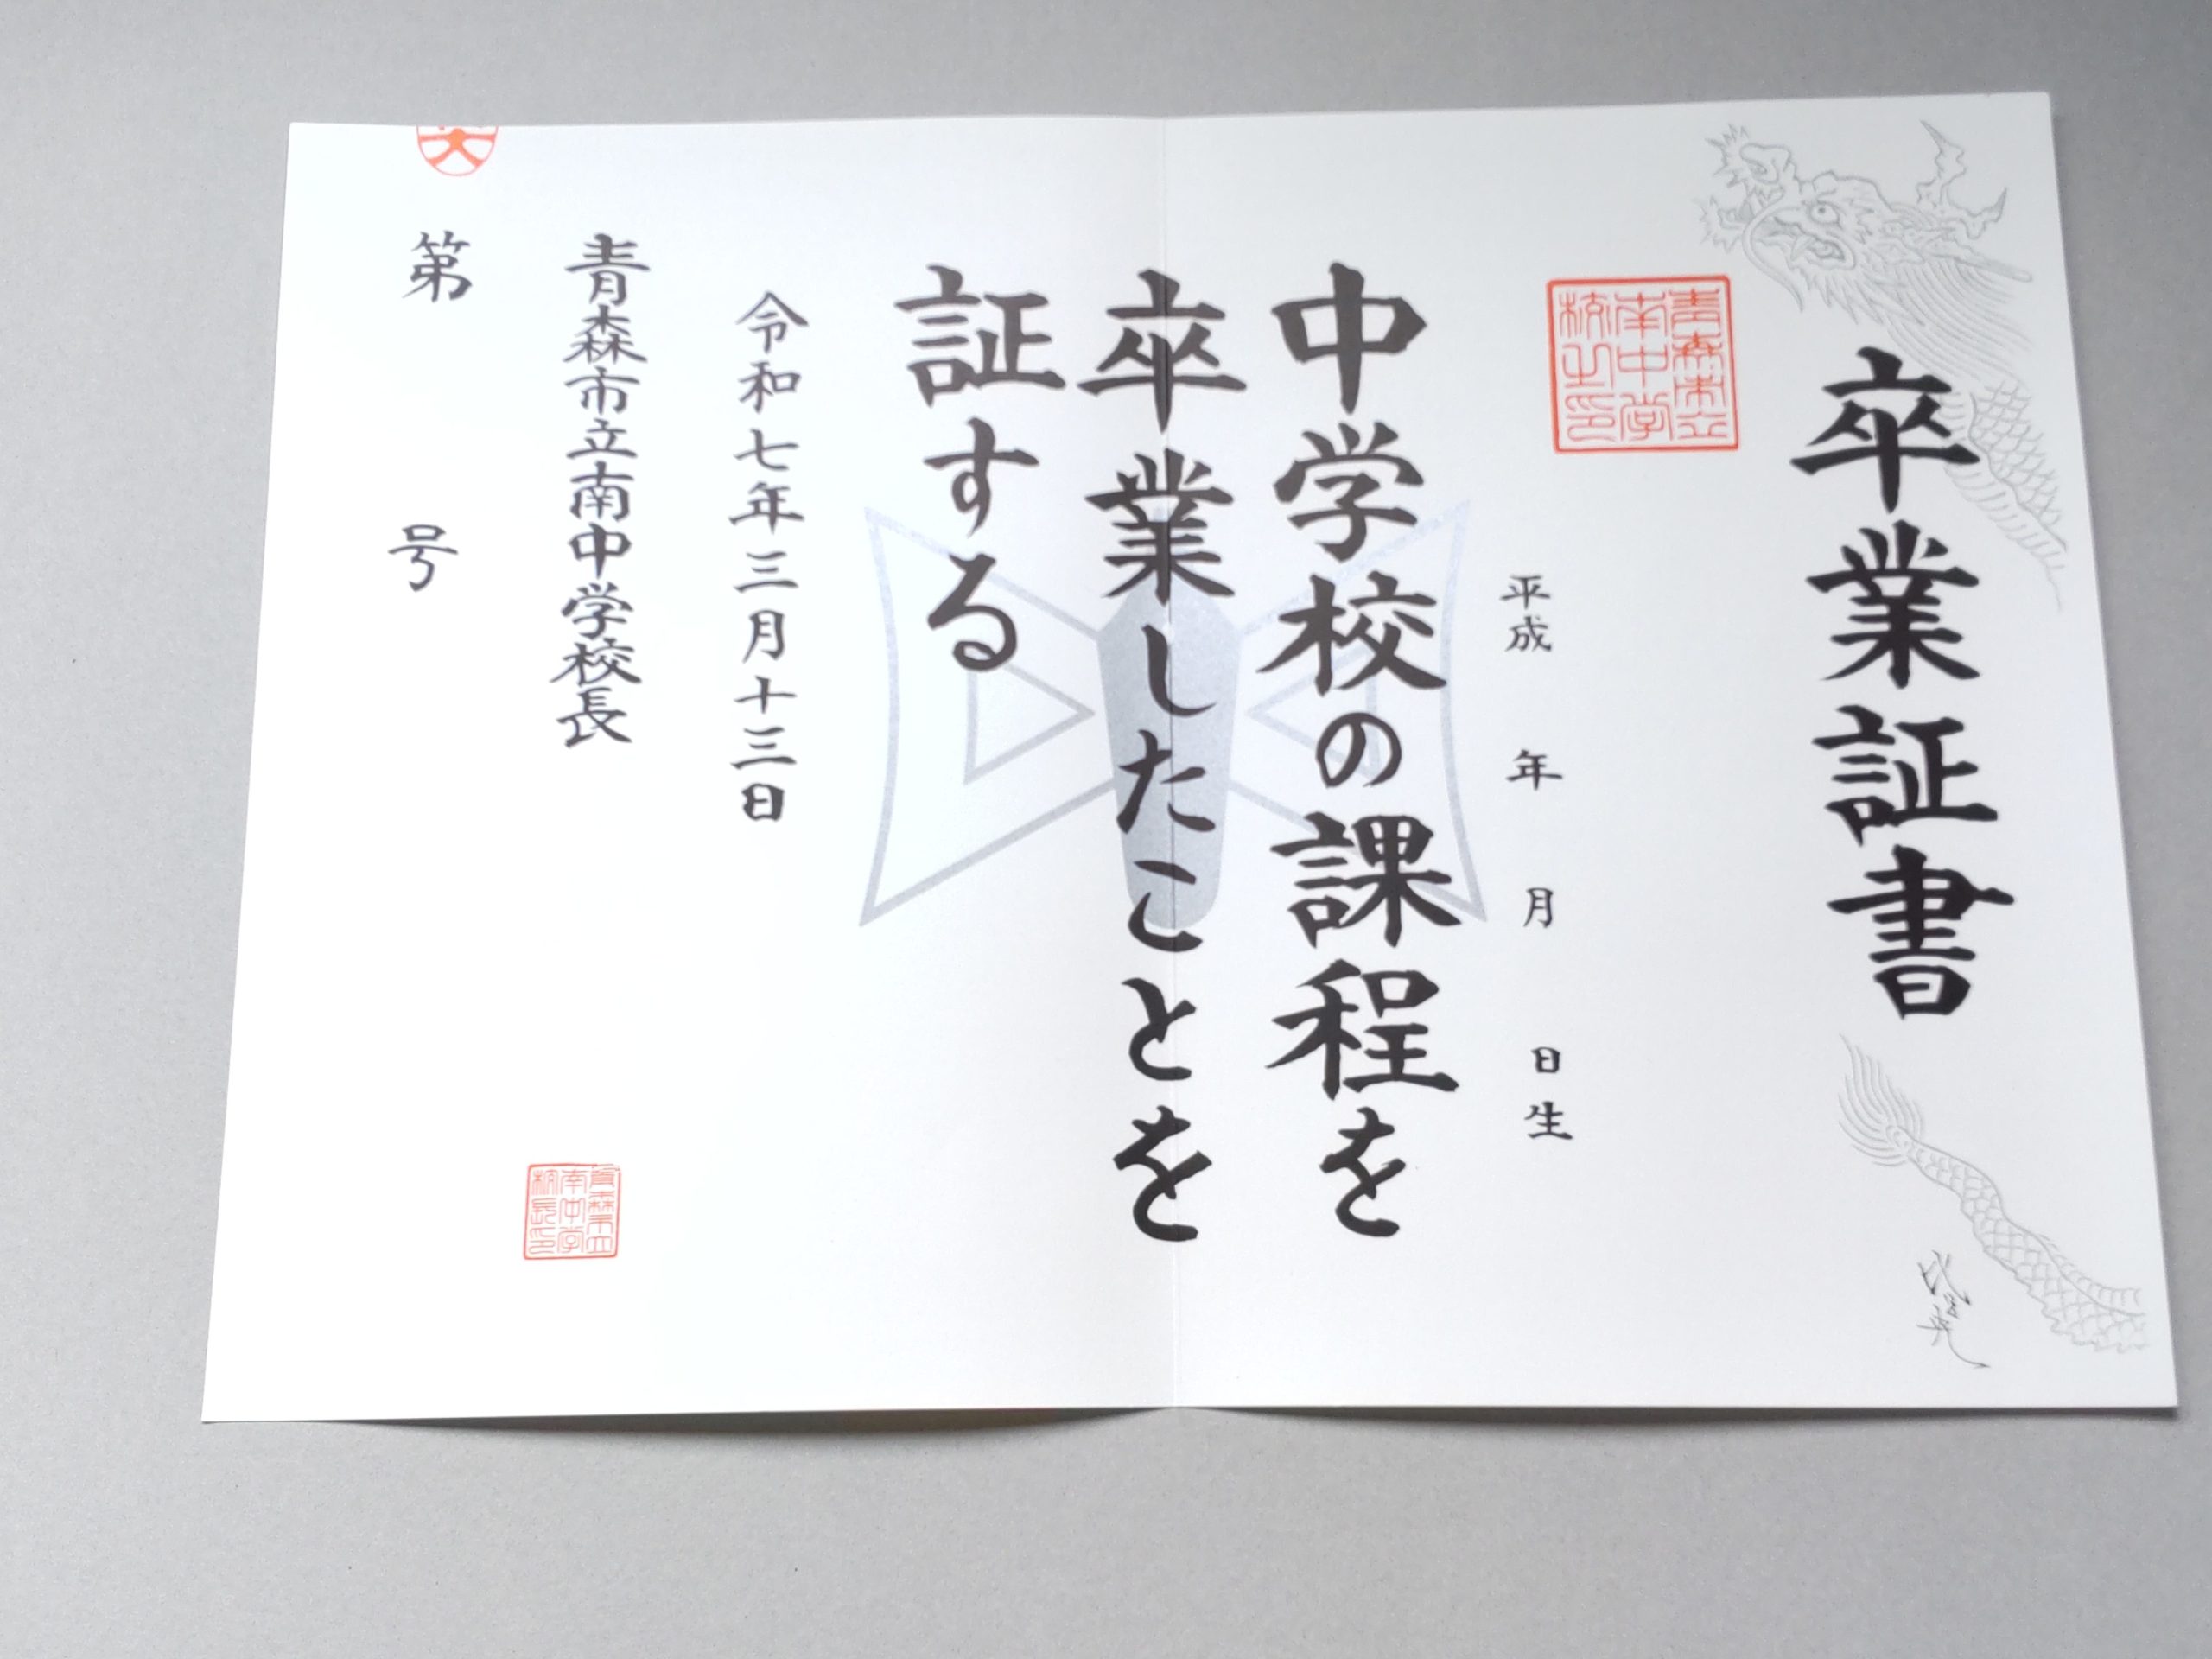 卒業証書
青森市立
南中学
校之印
平成　年　月　日生
中学校の課程を
卒業したことを
証する
令和七年三月十三日
青森市立南中学校長
青森市立
南中学
校長印
第　号